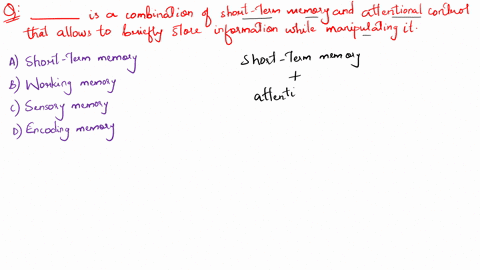 Q: ______ is a combination of short-term memory and attentional control
that allows to briefly store information while manipulating it.
A) Short-Term memory
B) Working memory
C) Sensory memory
D) Encoding memory
Short-Term memory
+
attenti